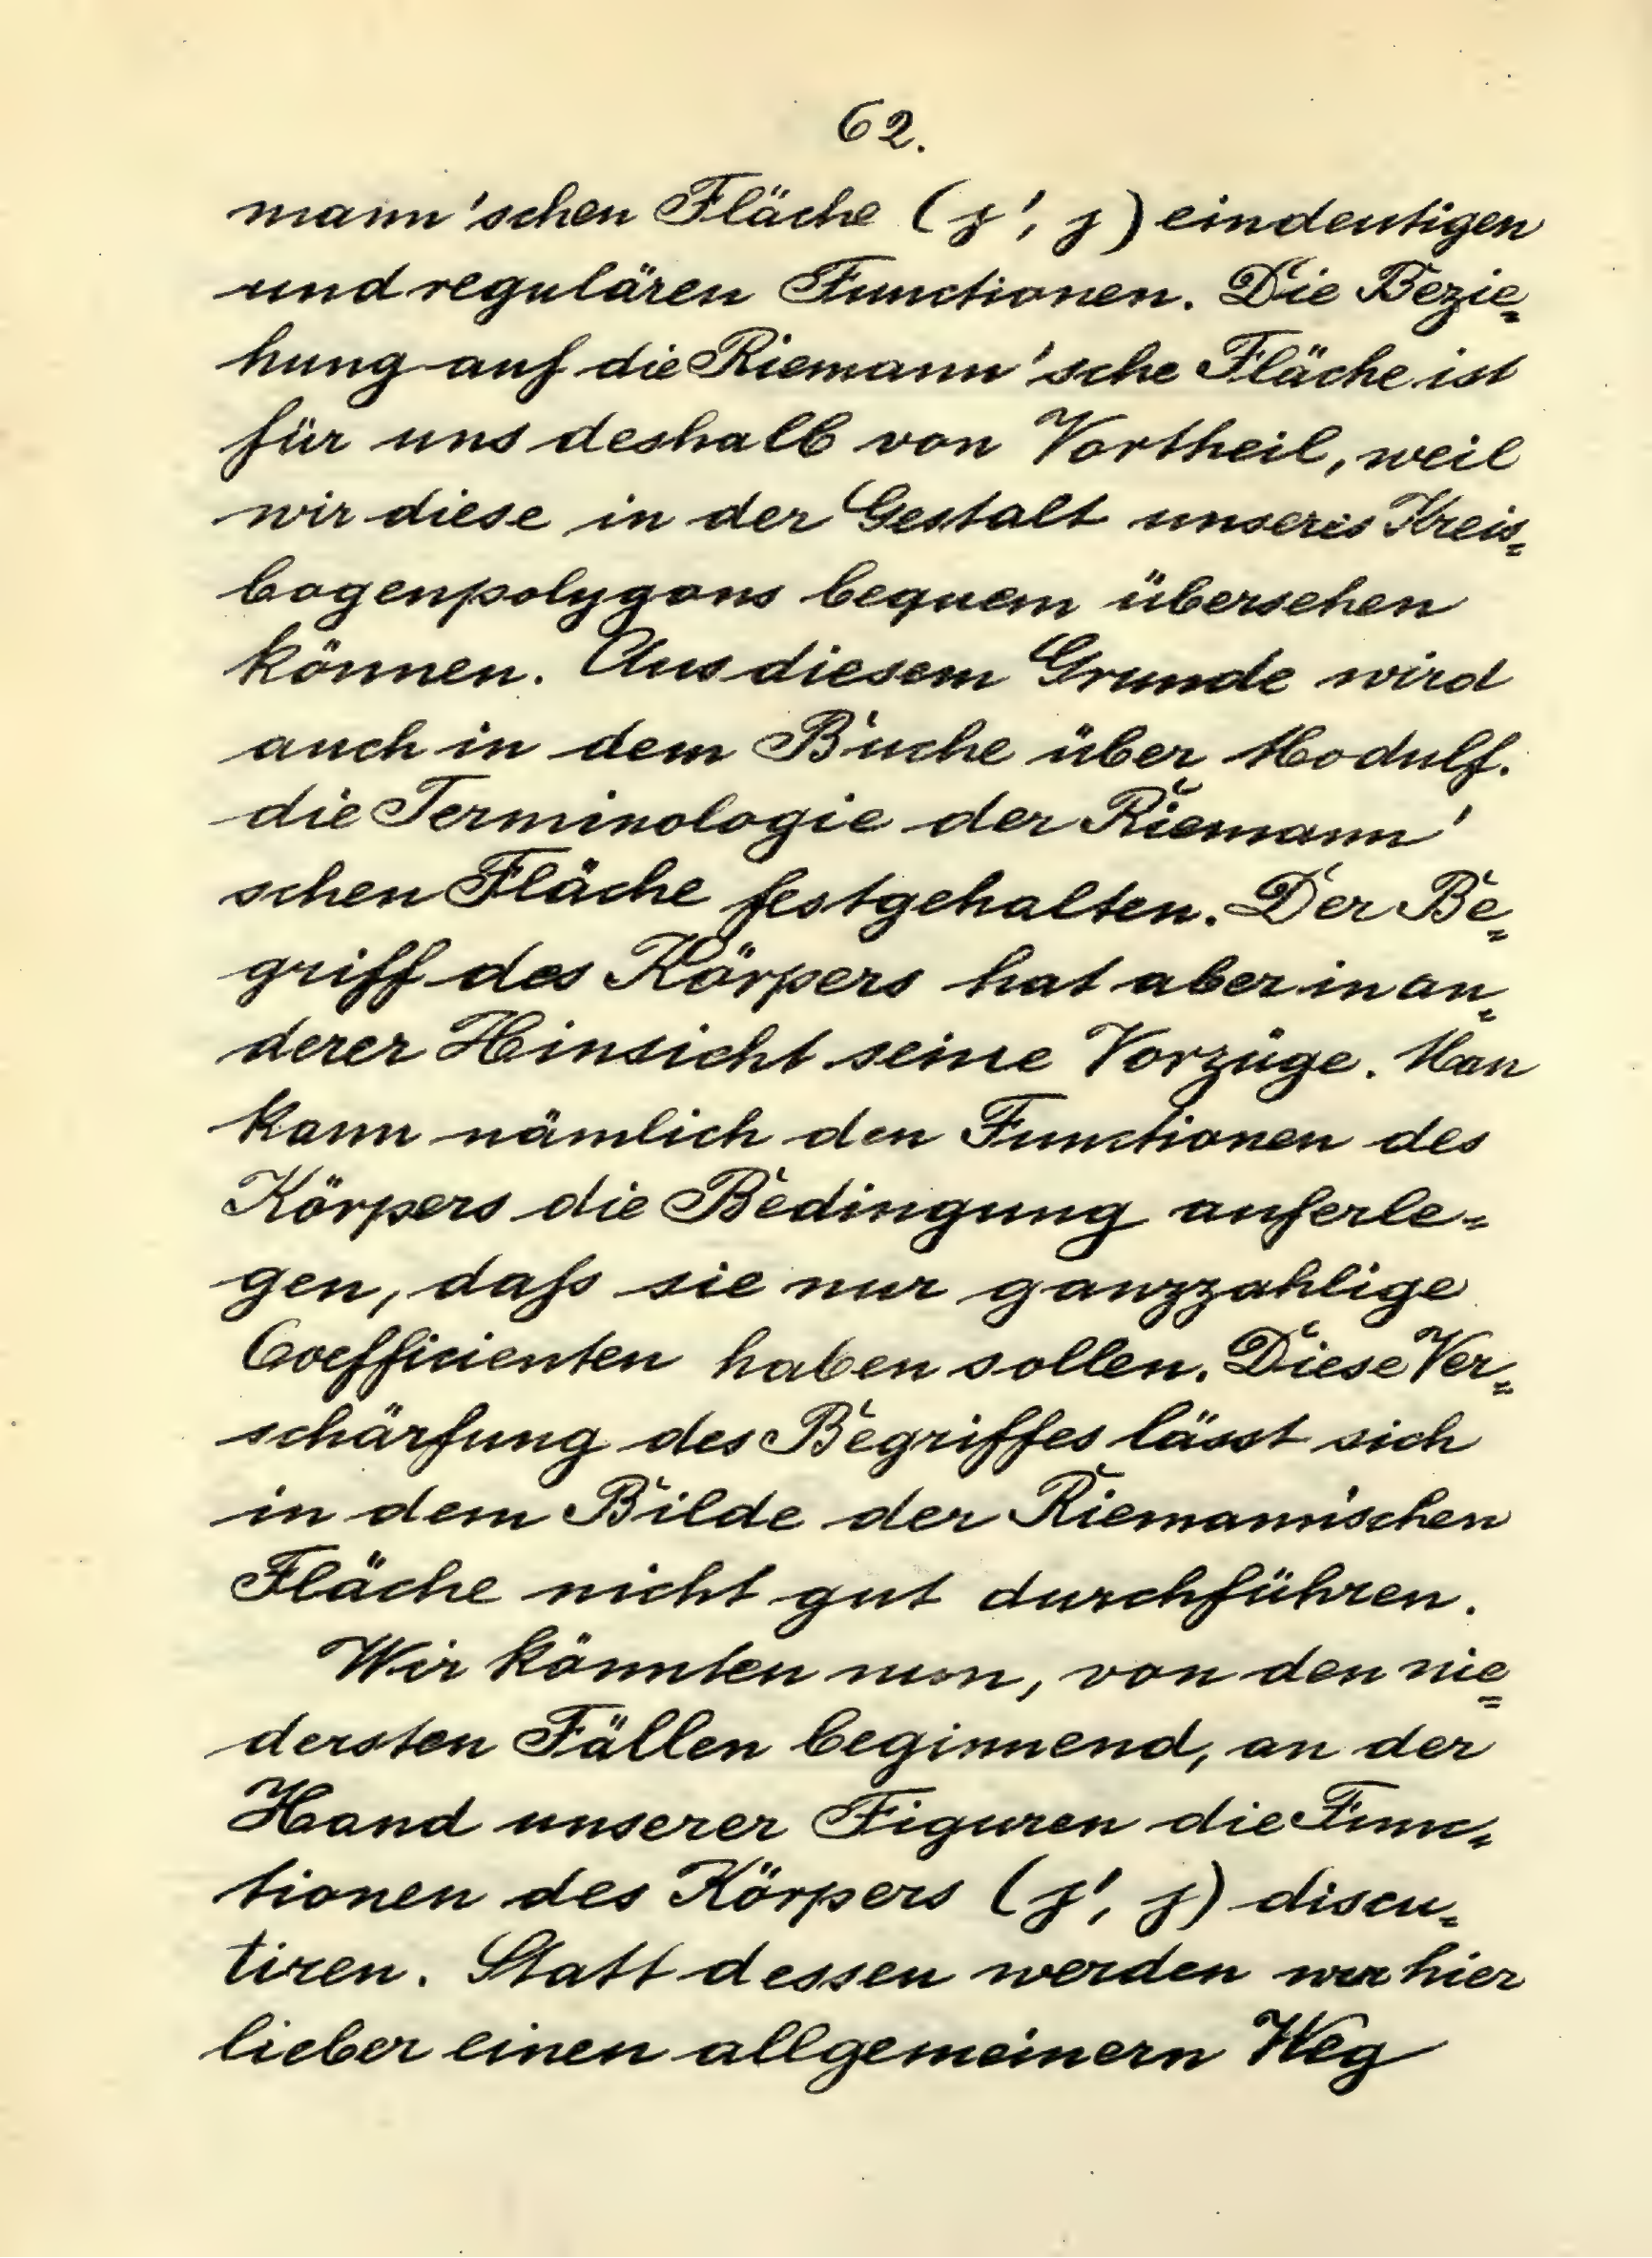 62.
mann'schen Fläche (j', j) eindeutigen
und regulären Functionen. Die Bezie=
hung auf die Riemann'sche Fläche ist
für uns deshalb von Vortheil, weil
wir diese in der Gestalt unseres Kreis=
bogenpolygons bequem übersehen
können. Aus diesem Grunde wird
auch in dem Buche über Modulf.
die Terminologie der Riemann'
schen Fläche festgehalten. Der Be=
griff des Körpers hat aber in an=
derer Hinsicht seine Vorzüge. Man
kann nämlich den Functionen des
Körpers die Bedingung auferle=
gen, daſs sie nur ganzzahlige
Coefficienten haben sollen. Diese Ver=
schärfung des Begriffes lässt sich
in dem Bilde der Riemann'schen
Fläche nicht gut durchführen.
Wir könnten nun, von den nie=
dersten Fällen beginnend, an der
Hand unserer Figuren die Func=
tionen des Körpers (j', j) discu=
tiren. Statt dessen werden wir hier
lieber einen allgemeinern Weg